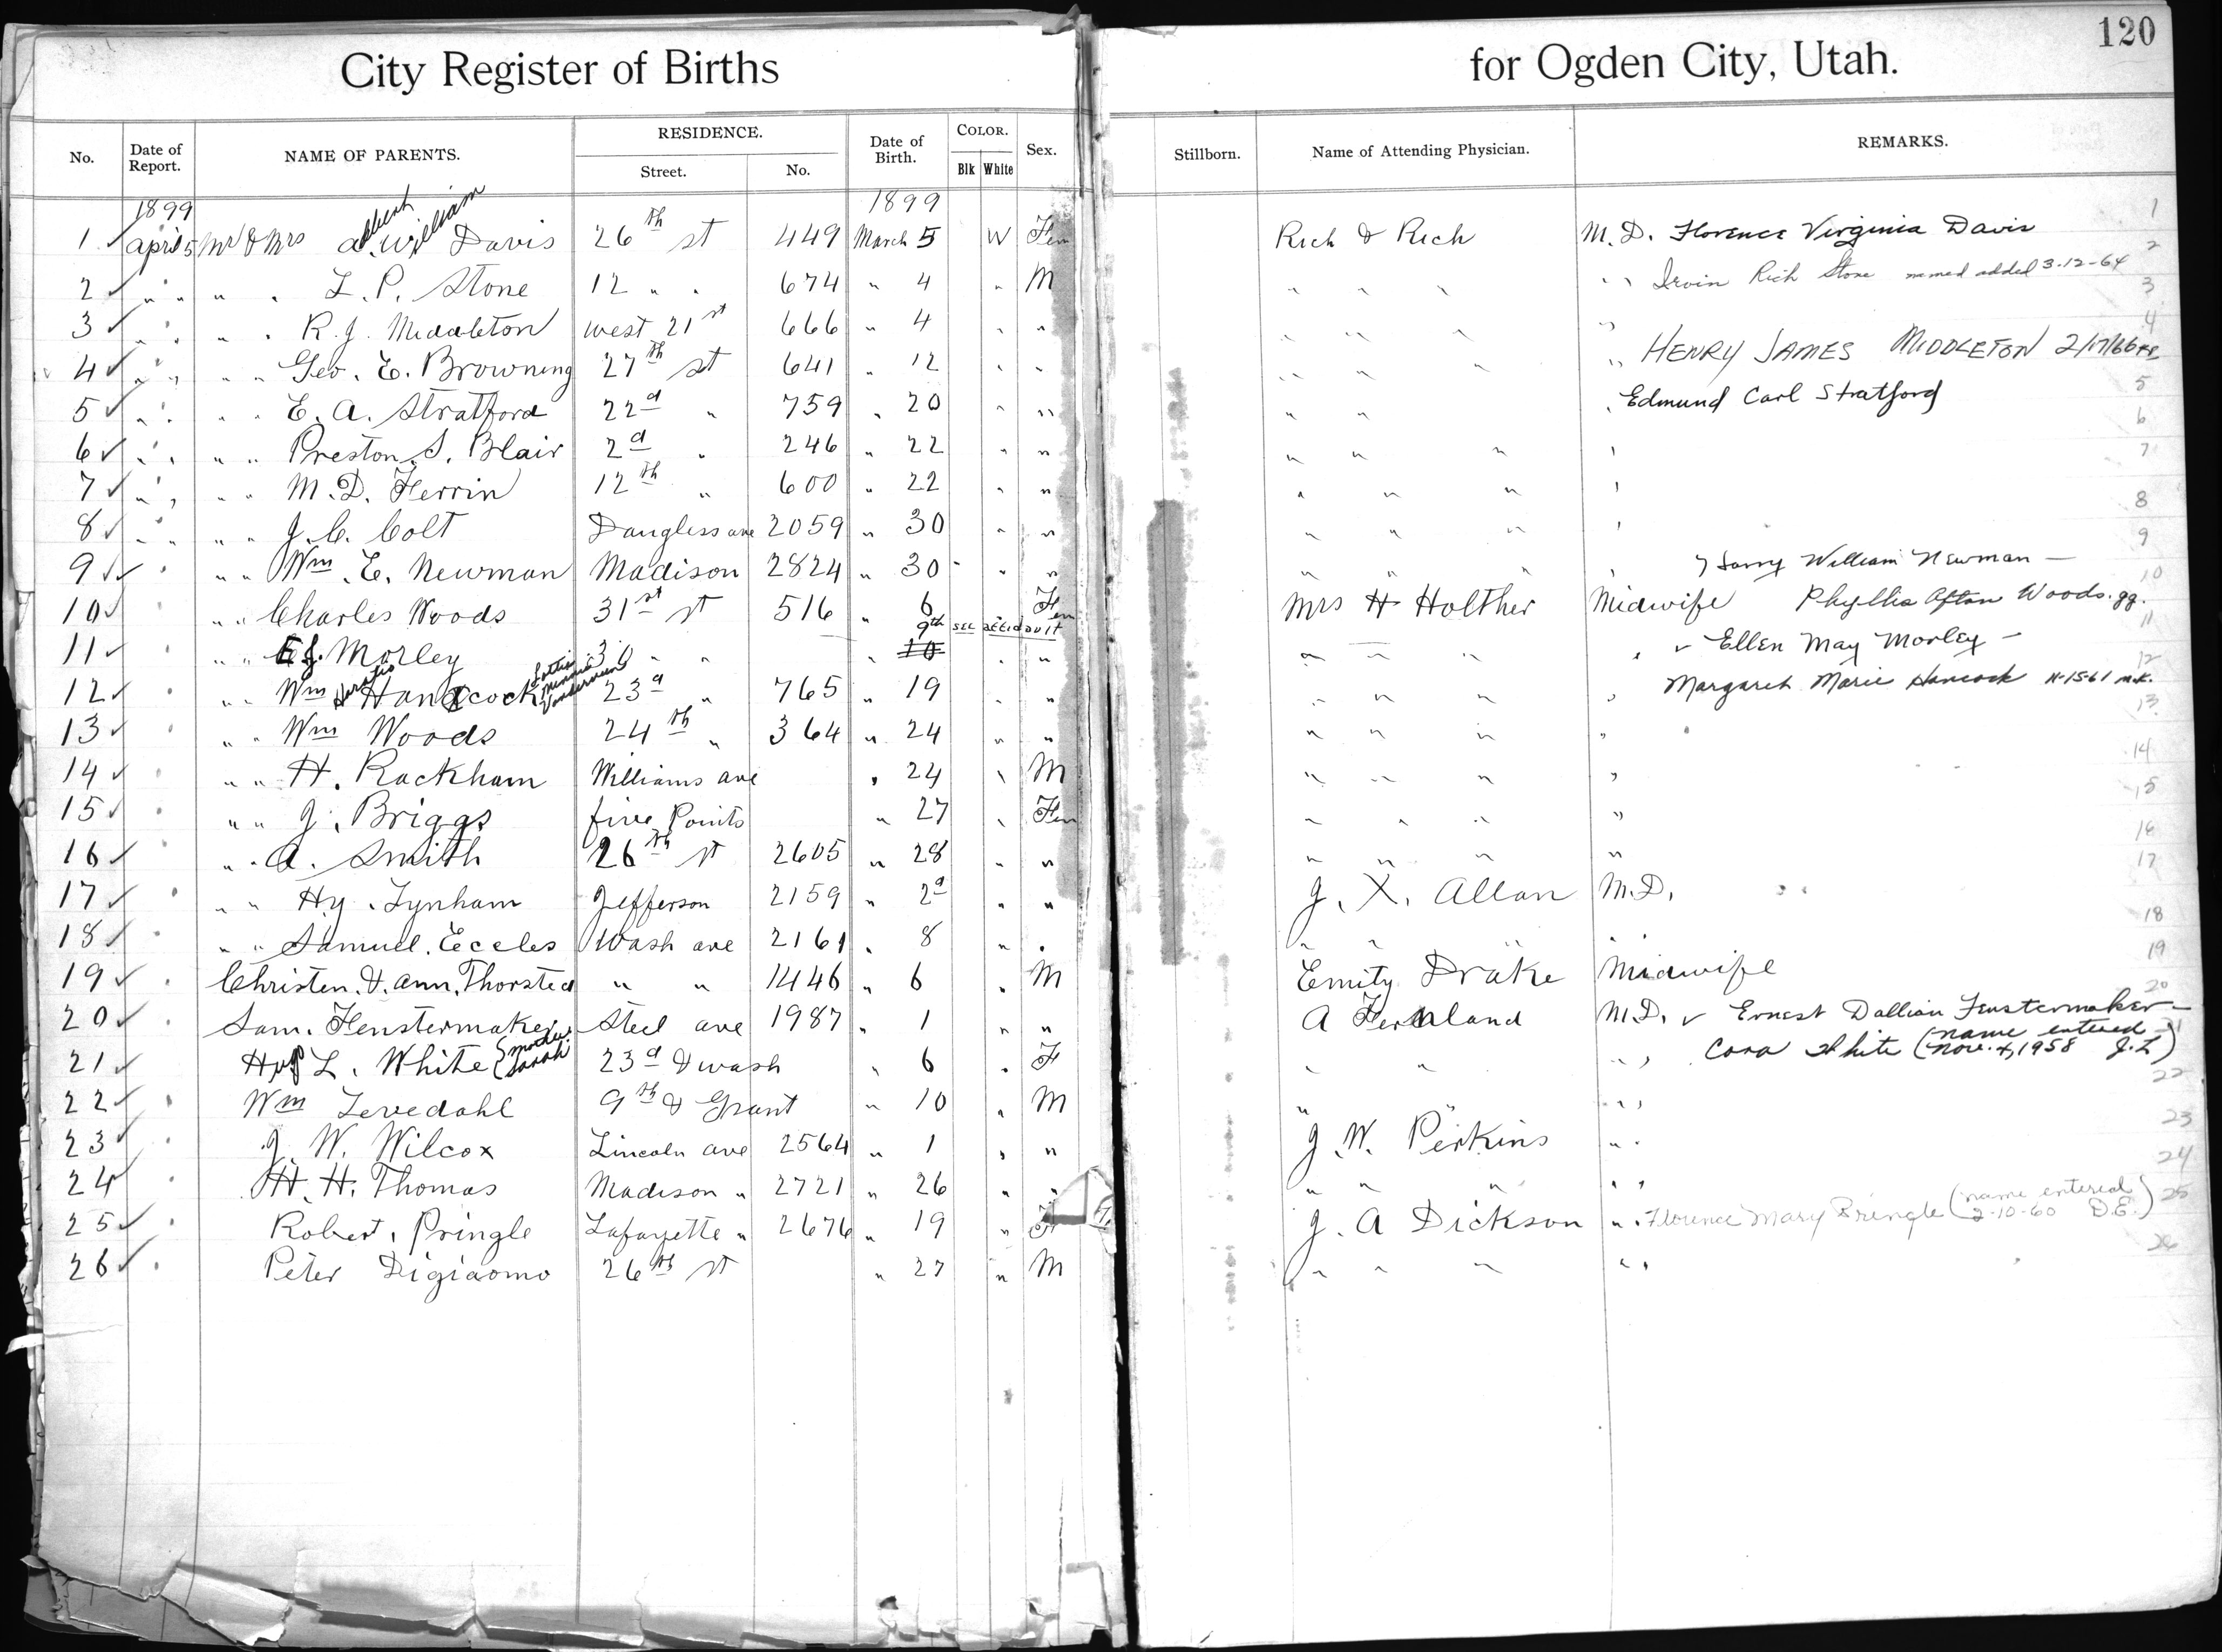 120
City Register of Births for Ogden City, Utah.
No. Date of Report. NAME OF PARENTS. RESIDENCE. Street. No. Date of Birth. COLOR. Blk White Sex. Stillborn. Name of Attending Physician. REMARKS.
1899 1899
1 april 5 Mr & Mrs A. Albert W. William Davis 26th st 449 March 5 W Fem Rich & Rich M.D. Florence Virginia Davis 1
2 " " " " L. P. Stone 12 " " 674 " 4 " M " " " " Irvin Rich Stone named added 3-12-64 2
3 " " " " R. J. Middleton west 21st 666 " 4 " " " " " " 3
4 " " " " Geo. E. Browning 27th st 641 " 12 " " " " " " HENRY JAMES MIDDLETON 2/17/66 4
5 " " " " E. A. Stratford 22d " 759 " 20 " " " " " Edmund Carl Stratford 5
6 " " " " Preston S. Blair 2d " 246 " 22 " " " " " " 6
7 " " " " M. D. Ferrin 12th " 600 " 22 " " " " " " 7
8 " " " " J. C. Colt Daugless ave 2059 " 30 " " " " " " 8
9 " " " Wm. E. Newman Madison 2824 " 30 " " " " " " Harry William Newman — 9
10 " " " Charles Woods 31st st 516 " 6 " Fem Mrs H Holther Midwife Phyllis Afton Woods. gg. 10
11 " " " E J. Morley 30 " " " 9th 10 see affidavit " " " " " " Ellen May Morley — 11
12 " " " Wm Horatio Handcock Lottie Minnie Vanderveen 23d " 765 " 19 " " " " " " Margaret Marie Hancock 11-15-61 m.k. 12
13 " " " Wm Woods 24th " 364 " 24 " " " " " " 13
14 " " " H. Rackham Williams ave " 24 " M " " " " 14
15 " " " J. Briggs five Points " 27 " Fem " " " " 15
16 " " " A. Smith 26th st 2605 " 28 " " " " " " 16
17 " " " Hy. Lynham Jefferson 2159 " 2d " " J. X. Allan M.D. 17
18 " " " Samuel Eccles Wash ave 2161 " 8 " " " " " " 18
19 " Christen. & Ann. Thorsted " " 1446 " 6 " M Emity Drake Midwife 19
20 " Sam. Fenstermaker Steel ave 1987 " 1 " " A Fernlund M.D. Ernest Dallian Fenstermaker — 20
21 " L. White (mother Sarah 23d & wash " 6 " F " " " Cora White (name entered Nov. 1958 J.L) 21
22 " Wm Levedahl 9th & Grant " 10 " M " " " 22
23 " J. W. Wilcox Lincoln ave 2564 " 1 " " J. W. Perkins " 23
24 " H. H. Thomas Madison " 2721 " 26 " " " " " " 24
25 " Robert. Pringle Lafayette " 2676 " 19 " F J. A Dickson " Florence Mary Pringle (name entered 2-10-60 D.E.) 25
26 " Peter Digiaomo 26th st " 27 " M " " " " 26